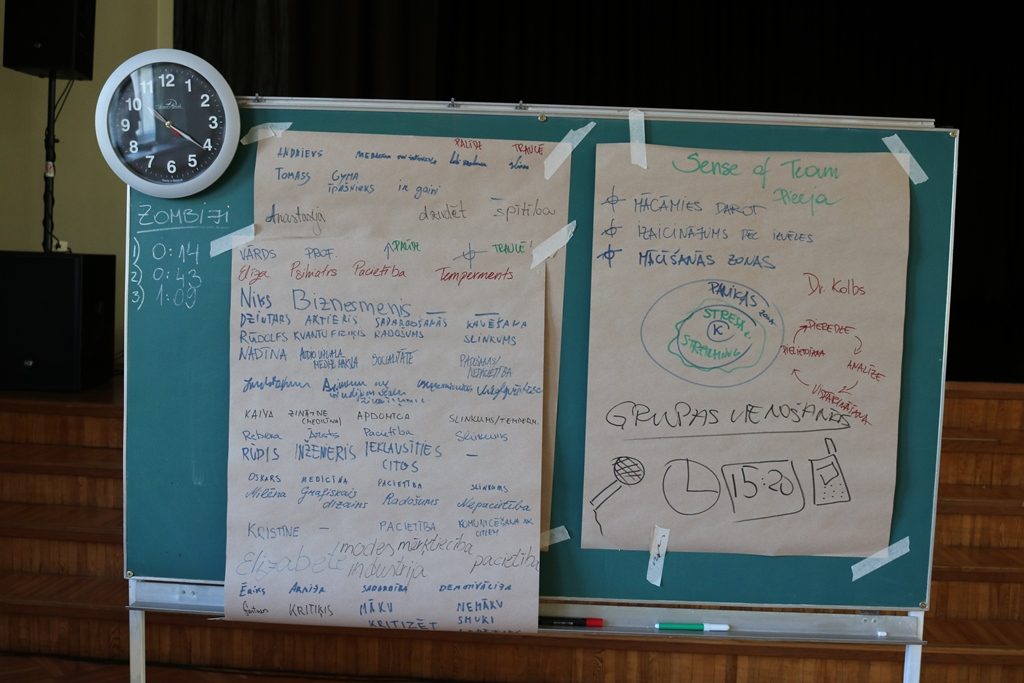 12
11
1
10
2
9
3
8
4
7
5
6
ZOMBIJI
1) 0:14
2) 0:43
3) 1:09
PALĪDZ TRAUCĒ
ANDREJS
TOMASS GYMA
ĪPAŠNIEKS ir gaiņi
Anastasija dziedēt spītība
VĀRDS PROF. ↑ PALĪDZ TRAUCĒ
Elīza Psihiatrs Pacietība Temperments
Niks Biznesmenis
DZINTARS AKTIERIS SADARBOŠANĀS KAVĒŠANA
RŪDOLFS KVANTU FIZIĶIS RADOŠUMS SLINKUMS
NADĪNA SOCIALITĀTE
KAIVA ZINĀTNE (MEDICĪNA) APDOMĪGA SLINKUMS/TEMPERM.
Rebeka Ārsts Pacietība Slinkums
RŪDIS INŽENERIS IEKLAUSĪTIES CITOS –
OSKARS MEDICĪNA PACIETĪBA SLINKUMS
Milēna Grafiskais dizains Radošums Nepacietība
KRISTĪNE – PACIETĪBA KOMUNICĒŠANA AR CITIEM
Elizabete modes industrija mērķtiecība pacietība
Ēriks ARMIJA SADARBĪBA DEMOTIVĀCIJA
KRITIĶIS MĀKU KRITIZĒT NEMĀKU SMUKI
Sense of Team
Pieeja
MĀCĀMIES DAROT
IZAICINĀJUMS PĒC IZVĒLES
MĀCĪŠANĀS ZONAS
PANIKAS zona
STRESA z.
K
STREČINGA
Dr. Kolbs
PIEREDZE
ANALĪZE
VISPĀRINĀŠANA
PIELIETOŠANA
GRUPAS VIENOŠANĀS
15:20